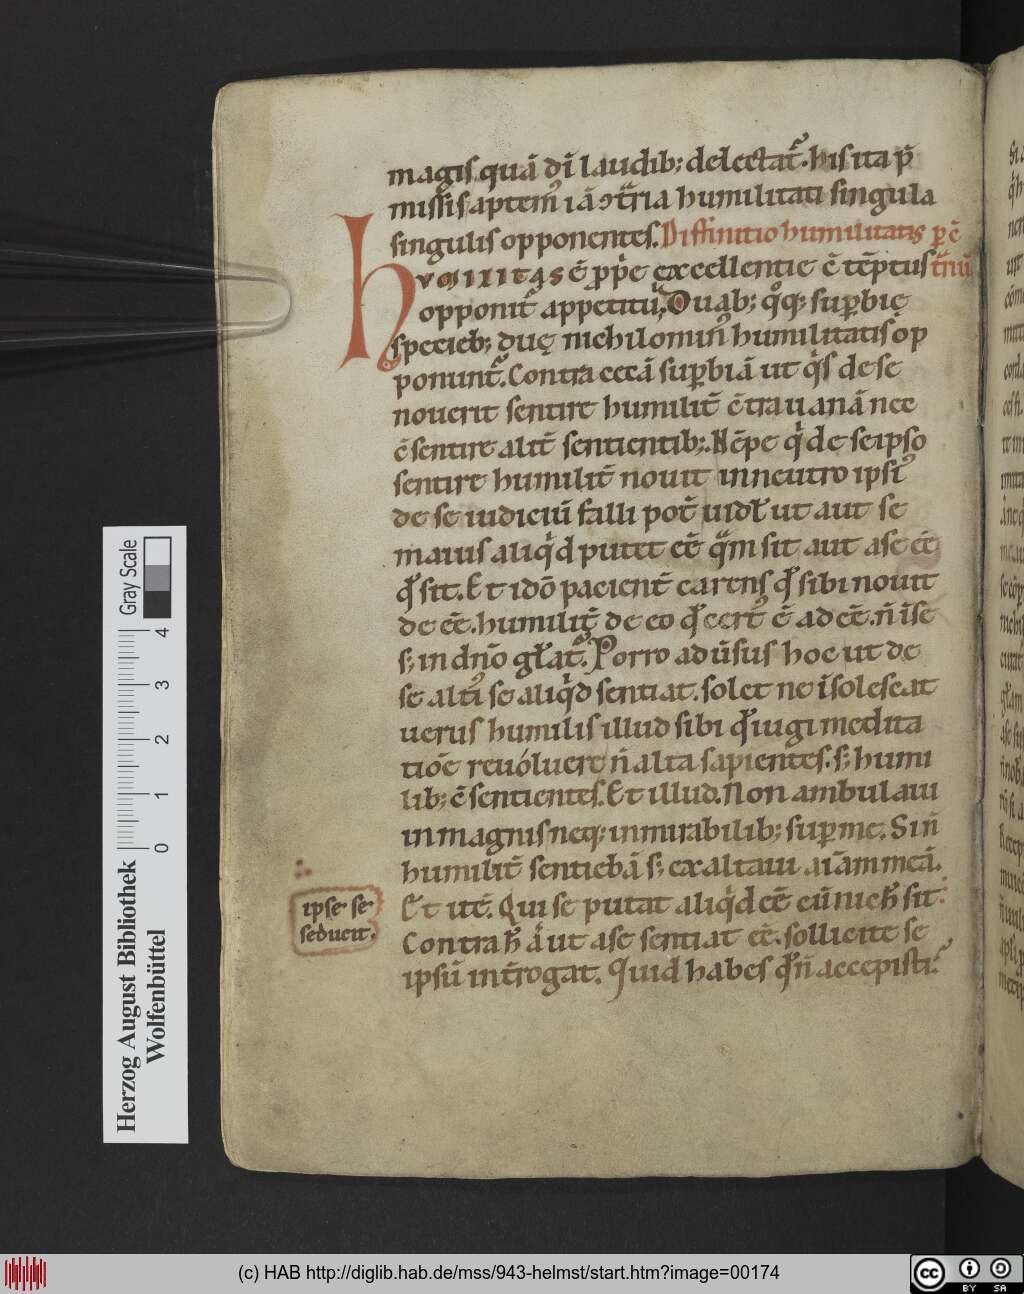 magis quā dī laudib; delectat᷑. his ita p̄
missis aptem᷒ iā ↄt᷑ria humilitati singula
singulis opponentes. Diffinitio humilitatis p̱ cē
hVMILITAS ē ꝓp̄e excellentie ē tēptus t᷑nū
opponit᷑ appetitū. Duab; qͦq; sup̱bię
specieb; duę nichilomin᷒ humilitatis op
ponunt᷑. Contra cecā sup̱biā ut qͥs de se
nouerit sentire humilit̄ ē tra uanā nec
ē sentire alit̄ sentientib;. Nēpe qͥ de seipso
sentire humilit̄ nouit in neutro ipsi᷒
de se iudiciū falli pot̄ uidꝉ ut aut se
maius aliqͥd putet eē qᷓm sit aut a se eē
qď sit. Et idō pacient̄ carens qď sibi nouit
de eē. humilit̄ de eo qď cert᷒ ē adeē. n̄ ī se
s; in dnō gꝉat᷑. Porro aduīsus hoc ut de
se alti᷒ se aliqͥd sentiat. solet ne īsolescat
uerus humilis illud sibi qď iugi medita
tiōe reuóluere n̄ alta sapientes. s; humi
lib; ē sentientes. Et illud. Non ambulaui
in magnis neq; in mirabilib; sup̱ me. Si n̄
humilit̄ sentiebā s; exaltaui aīam meā.
Et itē. Qui se putat aliqͥd eē cū nich̄ sit
ipse se
seducit.
Contra h̄ ͣ ut a se sentiat eē. sollicite se
ipsū int̄rogat. Quid habes qď n̄ accepisti?
Herzog August Bibliothek
Wolfenbüttel
0 1 2 3 4
Gray Scale
(c) HAB http://diglib.hab.de/mss/943-helmst/start.htm?image=00174
cc BY SA